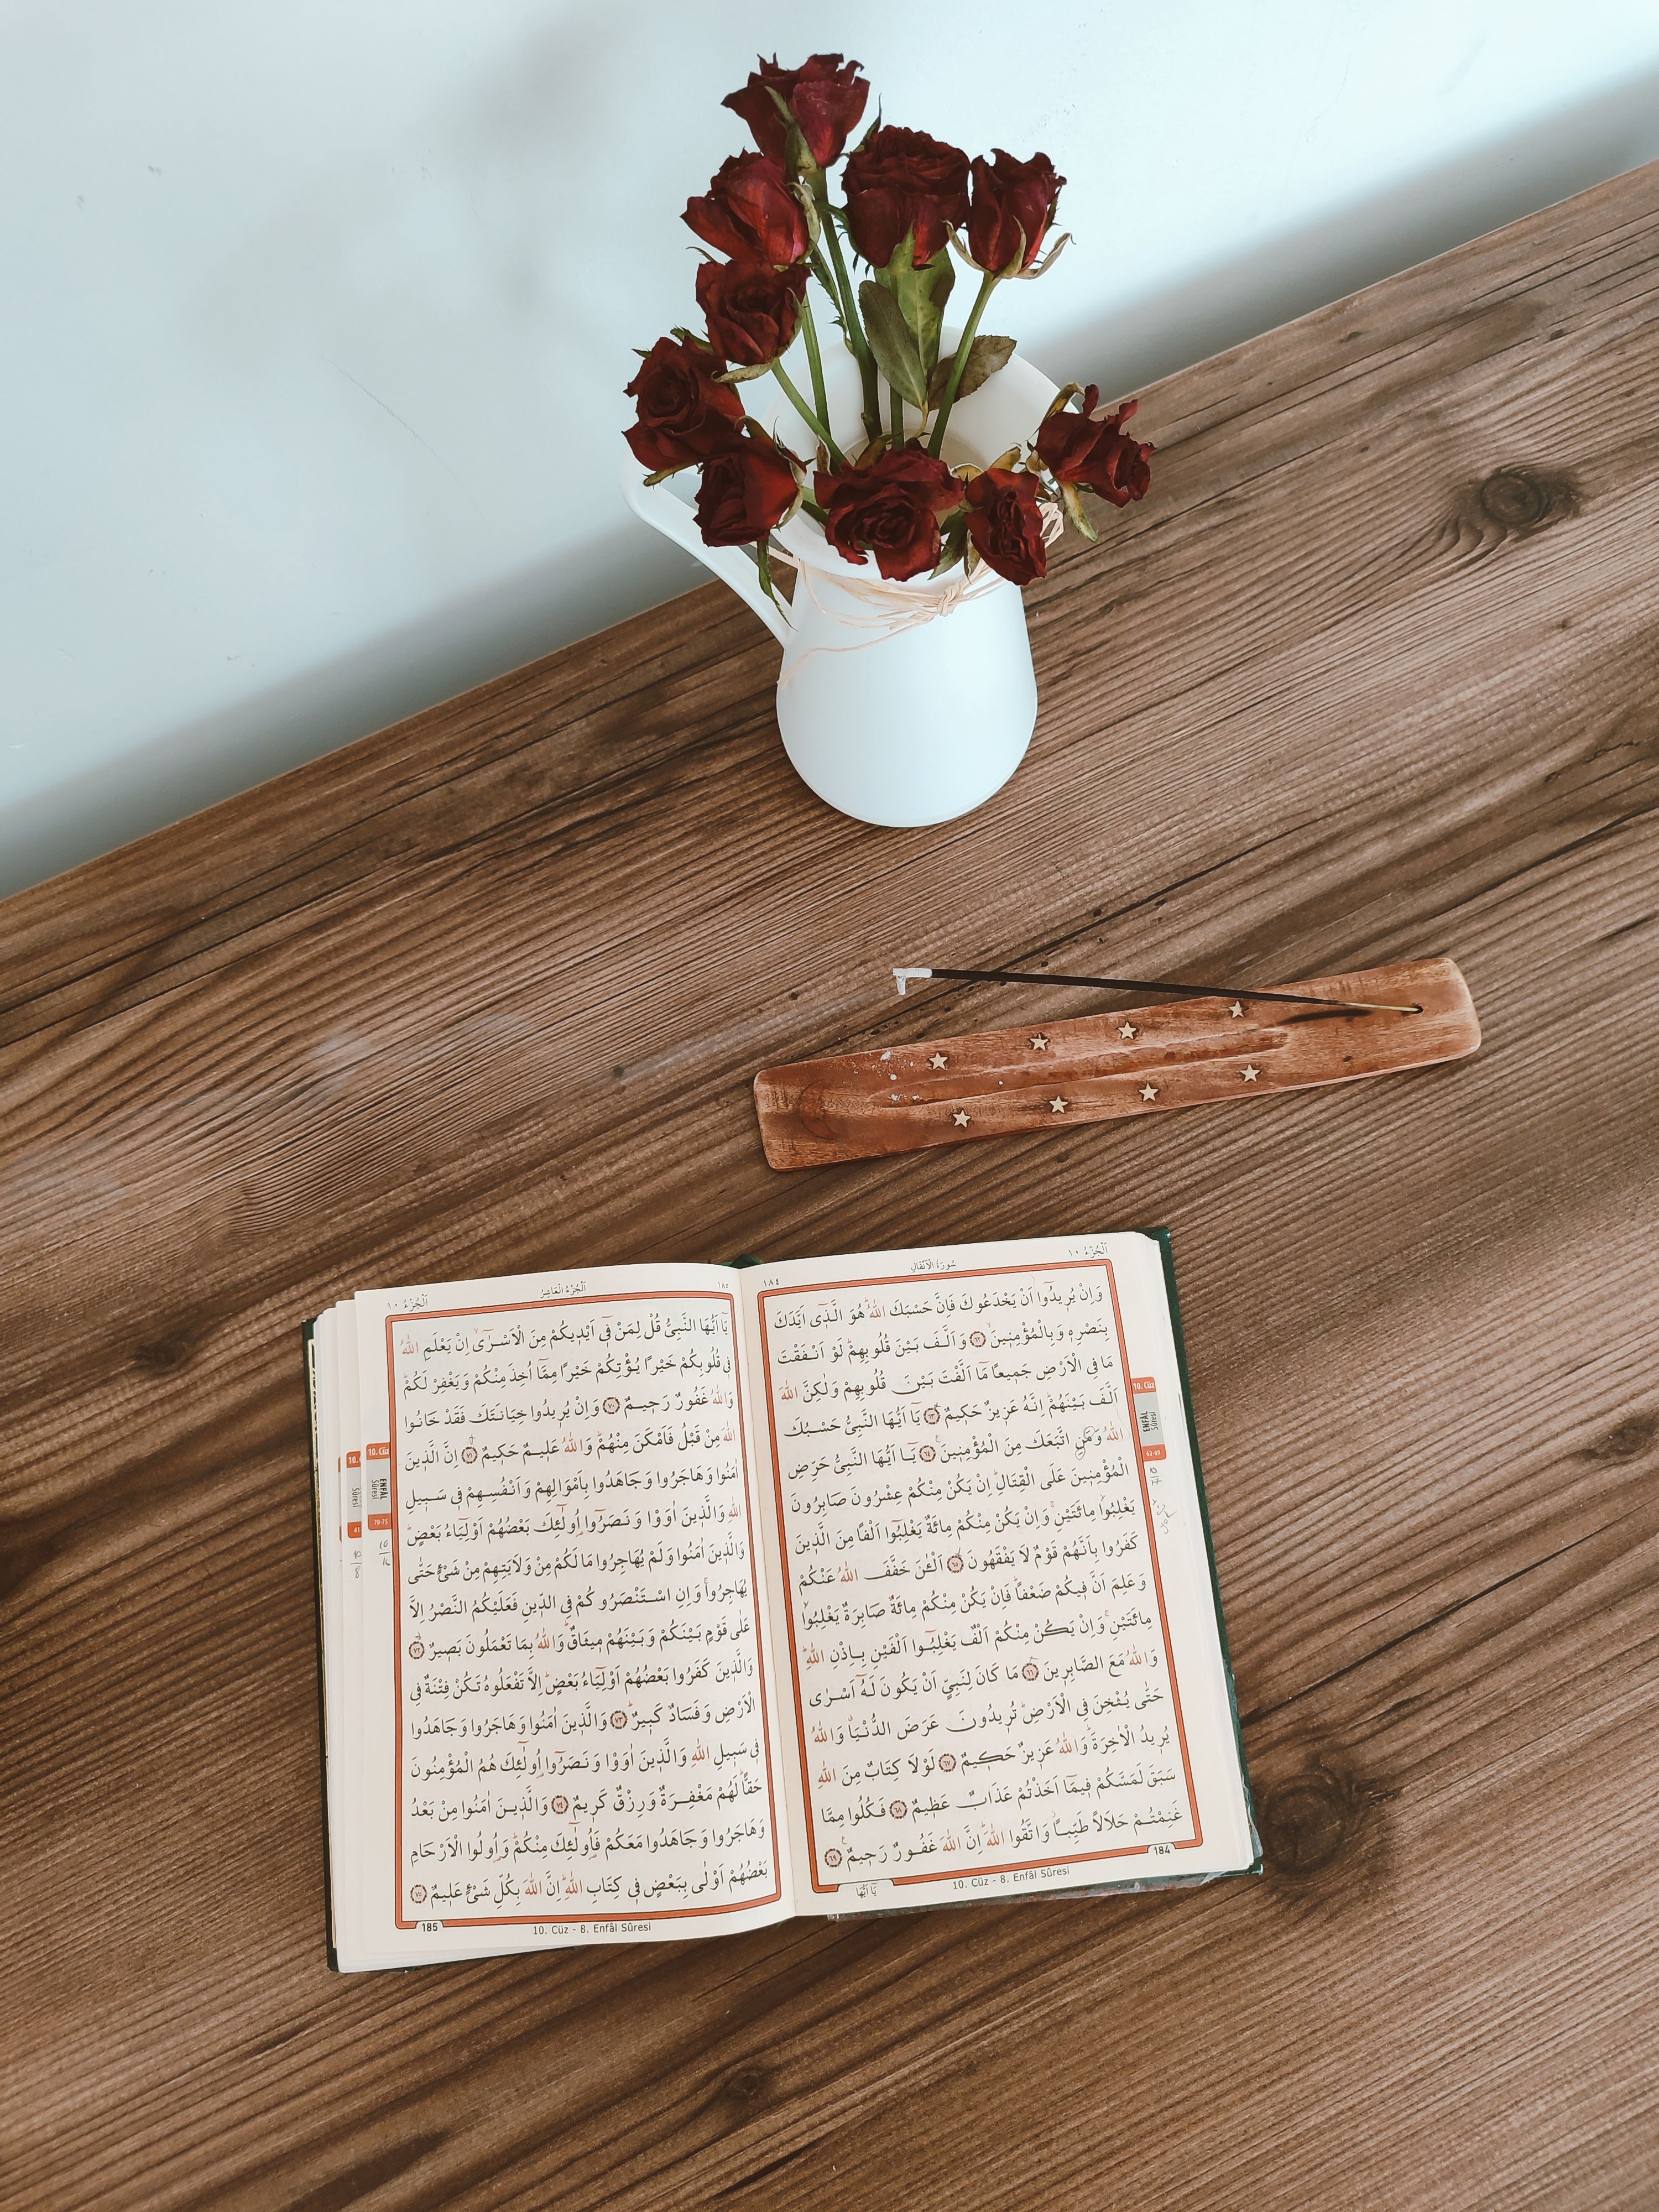 اَلْجُزْءُ ١٠
سُورَةُ الْاَنْفَالِ
١٨٤
وَاِنْ يُرٖيدُٓوا اَنْ يَخْدَعُوكَ فَاِنَّ حَسْبَكَ اللّٰهُۜ هُوَ الَّذٖٓى اَيَّدَكَ
بِنَصْرِهٖ وَبِالْمُؤْمِنٖينَۙ ﴿٦٢﴾ وَاَلَّفَ بَيْنَ قُلُوبِهِمْۜ لَوْ اَنْفَقْتَ
مَا فِى الْاَرْضِ جَمٖيعًا مَٓا اَلَّفْتَ بَيْنَ قُلُوبِهِمْ وَلٰكِنَّ اللّٰهَ
اَلَّفَ بَيْنَهُمْۜ اِنَّهُ عَزٖيزٌ حَكٖيمٌ ﴿٦٣﴾ يَٓا اَيُّهَا النَّبِىُّ حَسْبُكَ
اللّٰهُ وَمَنِ اتَّبَعَكَ مِنَ الْمُؤْمِنٖينَ۟ ﴿٦٤﴾ يَٓا اَيُّهَا النَّبِىُّ حَرِّضِ
الْمُؤْمِنٖينَ عَلَى الْقِتَالِۜ اِنْ يَكُنْ مِنْكُمْ عِشْرُونَ صَابِرُونَ
يَغْلِبُوا مِائَتَيْنِۚ وَاِنْ يَكُنْ مِنْكُمْ مِائَةٌ يَغْلِبُٓوا اَلْفًا مِنَ الَّذٖينَ
كَفَرُوا بِاَنَّهُمْ قَوْمٌ لَا يَفْقَهُونَ ﴿٦٥﴾ اَلْـٰٔنَ خَفَّفَ اللّٰهُ عَنْكُمْ
وَعَلِمَ اَنَّ فٖيكُمْ ضَعْفًاۜ فَاِنْ يَكُنْ مِنْكُمْ مِائَةٌ صَابِرَةٌ يَغْلِبُوا
مِائَتَيْنِۚ وَاِنْ يَكُنْ مِنْكُمْ اَلْفٌ يَغْلِبُٓوا اَلْفَيْنِ بِاِذْنِ اللّٰهِۜ
وَاللّٰهُ مَعَ الصَّابِرٖينَ ﴿٦٦﴾ مَا كَانَ لِنَبِىٍّ اَنْ يَكُونَ لَهُٓ اَسْرٰى
حَتّٰى يُثْخِنَ فِى الْاَرْضِۜ تُرٖيدُونَ عَرَضَ الدُّنْيَاۗ وَاللّٰهُ
يُرٖيدُ الْاٰخِرَةَۜ وَاللّٰهُ عَزٖيزٌ حَكٖيمٌ ﴿٦٧﴾ لَوْلَا كِتَابٌ مِنَ اللّٰهِ
سَبَقَ لَمَسَّكُمْ فٖيمَٓا اَخَذْتُمْ عَذَابٌ عَظٖيمٌ ﴿٦٨﴾ فَكُلُوا مِمَّا
غَنِمْتُمْ حَلَالًا طَيِّبًاۘ وَاتَّقُوا اللّٰهَۜ اِنَّ اللّٰهَ غَفُورٌ رَحٖيمٌ۟ ﴿٦٩﴾
يَٓا اَيُّهَا
10. Cüz - 8. Enfâl Sûresi
184
10. Cüz
ENFÂL
Sûresi
62-69
١٨٥
اَلْجُزْءُ الْعَاشِرُ
اَلْجُزْءُ ١٠
يَٓا اَيُّهَا النَّبِىُّ قُلْ لِمَنْ فٖٓى اَيْدٖيكُمْ مِنَ الْاَسْرٰٓىۙ اِنْ يَعْلَمِ اللّٰهُ
فٖى قُلُوبِكُمْ خَيْرًا يُؤْتِكُمْ خَيْرًا مِمَّٓا اُخِذَ مِنْكُمْ وَيَغْفِرْ لَكُمْۜ
وَاللّٰهُ غَفُورٌ رَحٖيمٌ ﴿٧٠﴾ وَاِنْ يُرٖيدُوا خِيَانَتَكَ فَقَدْ خَانُوا
اللّٰهَ مِنْ قَبْلُ فَاَمْكَنَ مِنْهُمْۜ وَاللّٰهُ عَلٖيمٌ حَكٖيمٌ ﴿٧١﴾ اِنَّ الَّذٖينَ
اٰمَنُوا وَهَاجَرُوا وَجَاهَدُوا بِاَمْوَالِهِمْ وَاَنْفُسِهِمْ فٖى سَبٖيلِ
اللّٰهِ وَالَّذٖينَ اٰوَوْا وَنَصَرُٓوا اُو۬لٰٓئِكَ بَعْضُهُمْ اَوْلِيَٓاءُ بَعْضٍۜ
وَالَّذٖينَ اٰمَنُوا وَلَمْ يُهَاجِرُوا مَا لَكُمْ مِنْ وَلَايَتِهِمْ مِنْ شَىْءٍ حَتّٰى
يُهَاجِرُواۚ وَاِنِ اسْتَنْصَرُوكُمْ فِى الدّٖينِ فَعَلَيْكُمُ النَّصْرُ اِلَّا
عَلٰى قَوْمٍ بَيْنَكُمْ وَبَيْنَهُمْ مٖيثَاقٌۜ وَاللّٰهُ بِمَا تَعْمَلُونَ بَصٖيرٌ ﴿٧٢﴾
وَالَّذٖينَ كَفَرُوا بَعْضُهُمْ اَوْلِيَٓاءُ بَعْضٍۜ اِلَّا تَفْعَلُوهُ تَكُنْ فِتْنَةٌ فِى
الْاَرْضِ وَفَسَادٌ كَبٖيرٌۜ ﴿٧٣﴾ وَالَّذٖينَ اٰمَنُوا وَهَاجَرُوا وَجَاهَدُوا
فٖى سَبٖيلِ اللّٰهِ وَالَّذٖينَ اٰوَوْا وَنَصَرُٓوا اُو۬لٰٓئِكَ هُمُ الْمُؤْمِنُونَ
حَقًّاۜ لَهُمْ مَغْفِرَةٌ وَرِزْقٌ كَرٖيمٌ ﴿٧٤﴾ وَالَّذٖينَ اٰمَنُوا مِنْ بَعْدُ
وَهَاجَرُوا وَجَاهَدُوا مَعَكُمْ فَاُو۬لٰٓئِكَ مِنْكُمْۜ وَاُو۬لُوا الْاَرْحَامِ
بَعْضُهُمْ اَوْلٰى بِبَعْضٍ فٖى كِتَابِ اللّٰهِۜ اِنَّ اللّٰهَ بِكُلِّ شَىْءٍ عَلٖيمٌ ﴿٧٥﴾
10. Cüz - 8. Enfâl Sûresi
185
10. Cüz
ENFÂL
Sûresi
70-75
10.
Sûresi
41